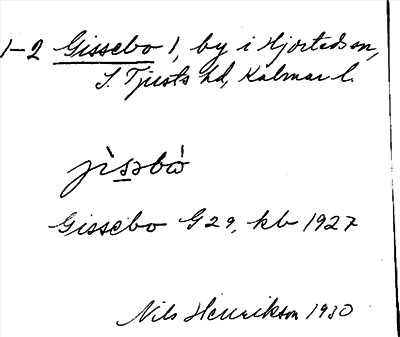 1-2 Gissebo 1, by i Hjorteds sn,
S. Tjusts hd, Kalmar l.
jìsəbὼ
Gissebo G 29, kb 1927
Nils Henrikson 1930